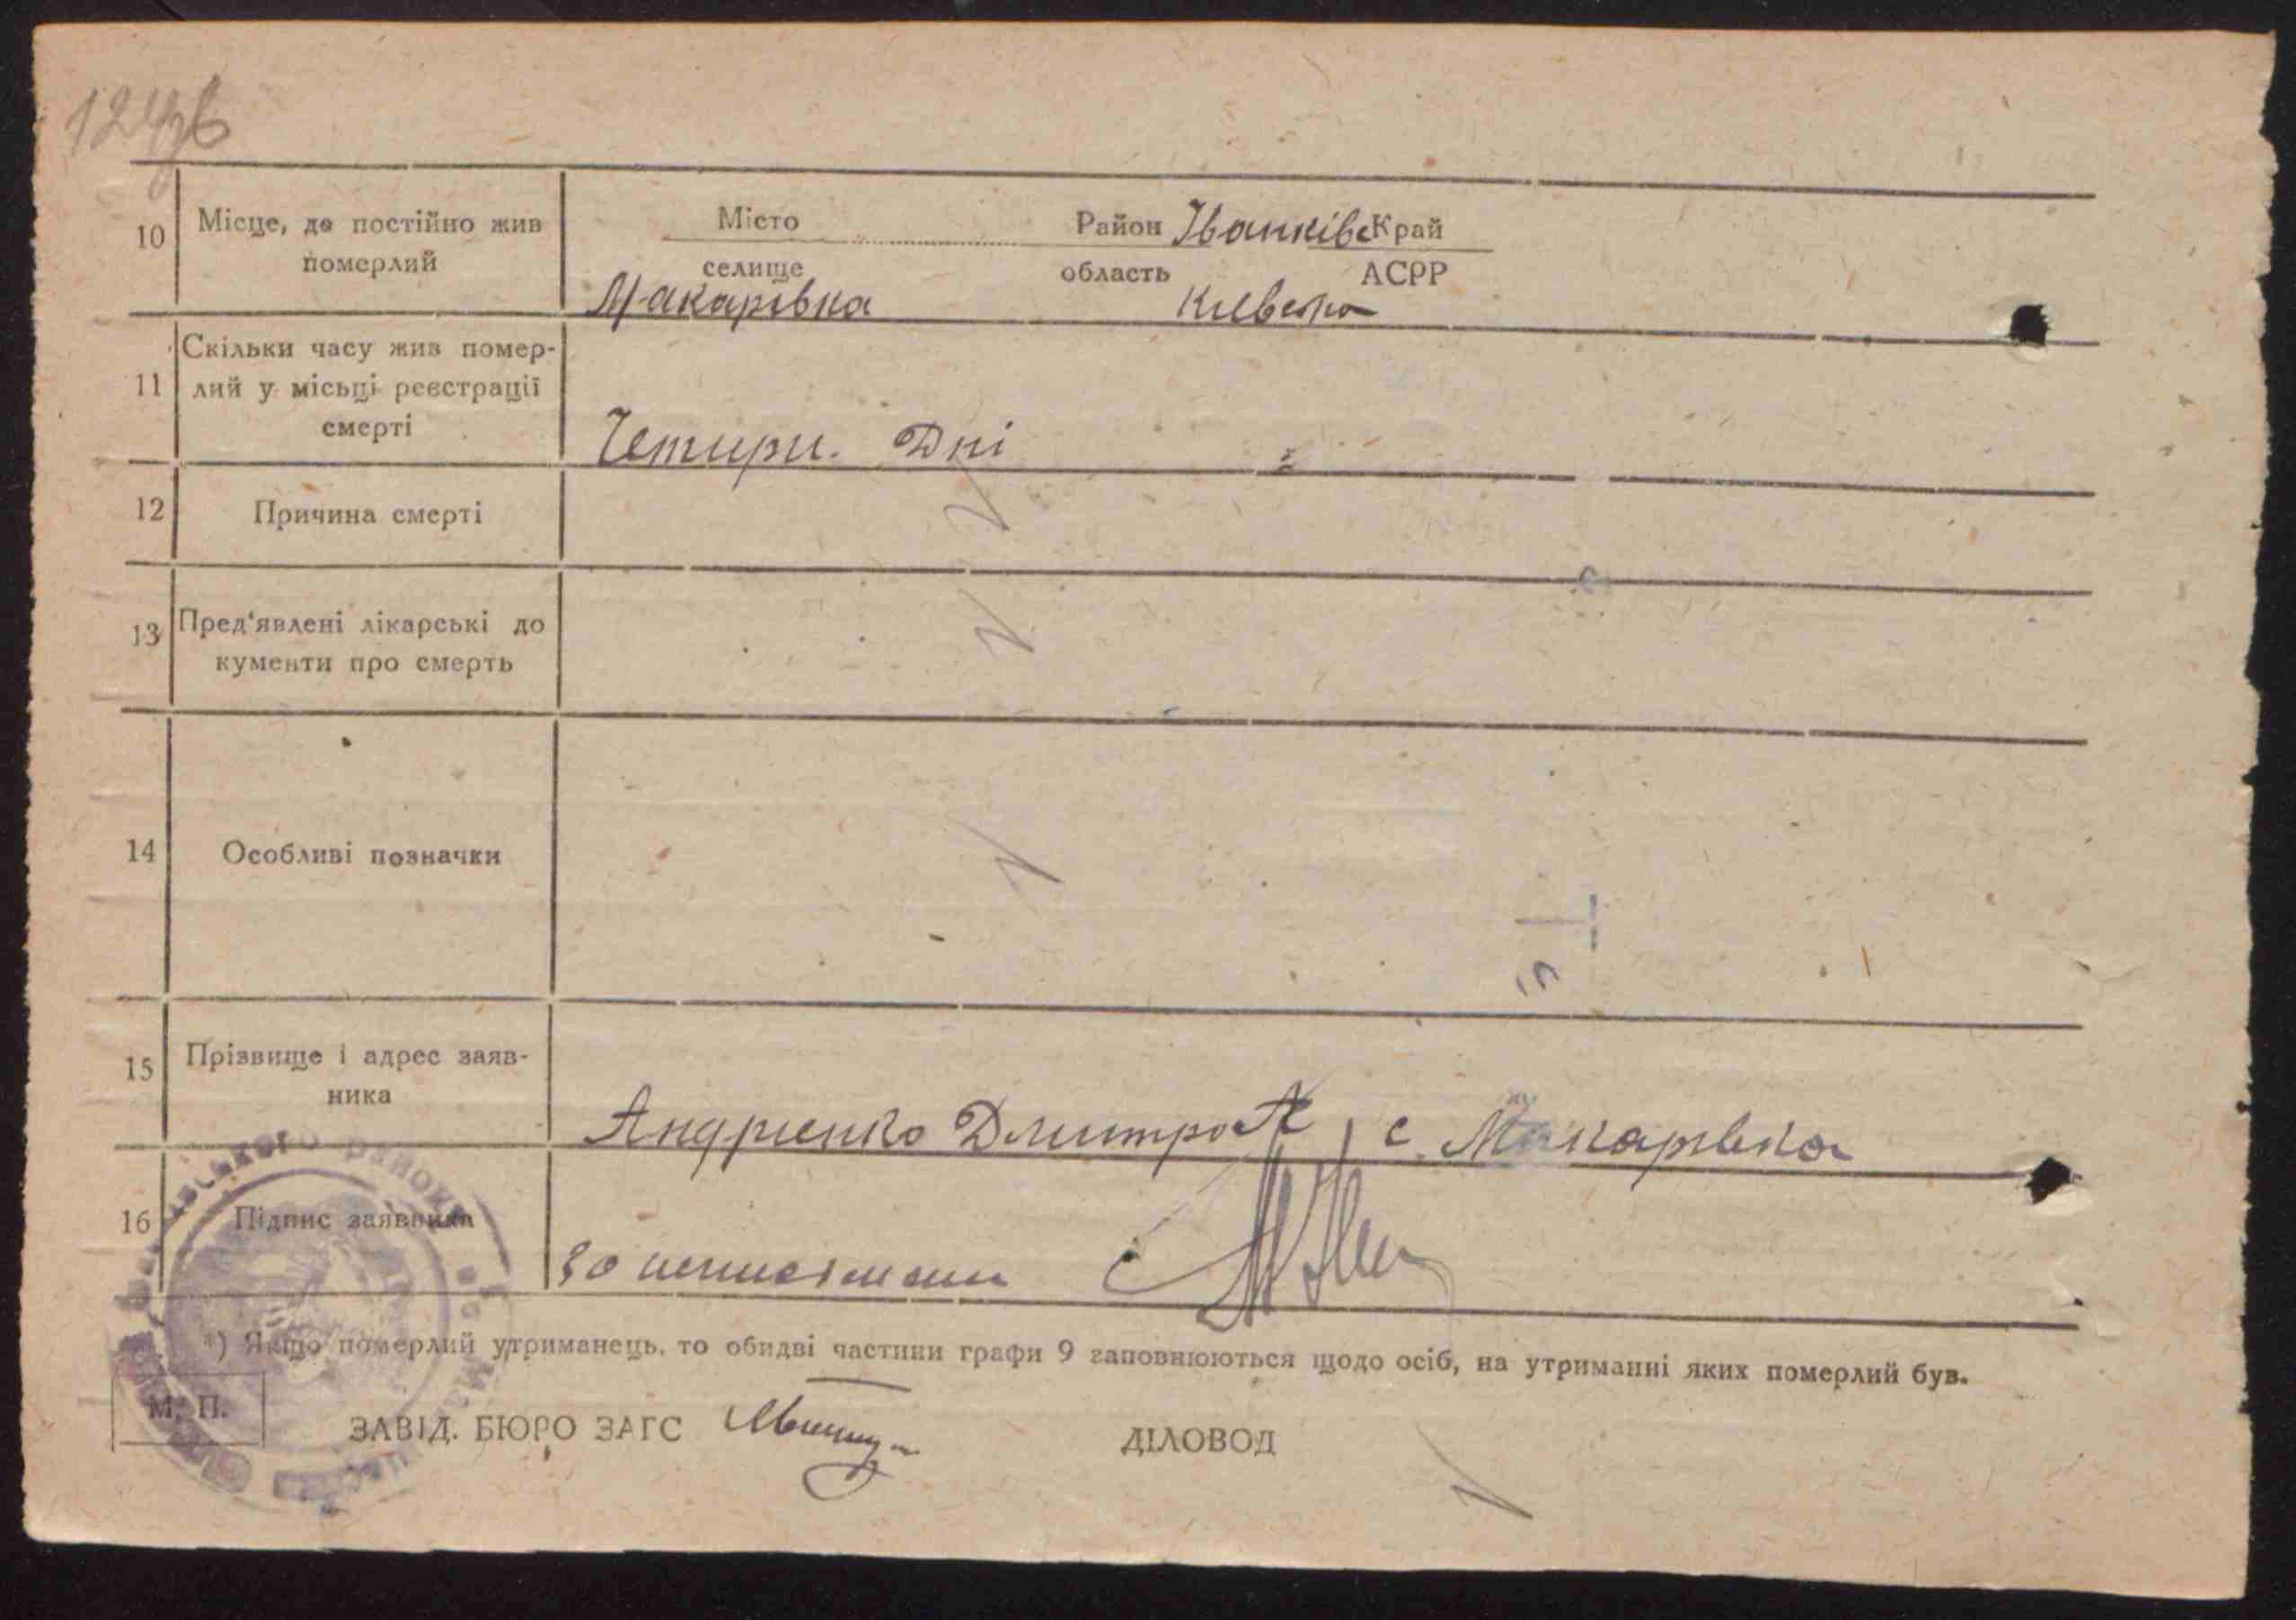 10 Місце, де постійно жив Місто Район Іванківс Край
померлий селище область АСРР
Макарівка Київська
Скільки часу жив помер-
11 лий у місьці реєстрації
смерті
Четири. Дні
12 Причина смерті
13 Пред'явлені лікарські до
кументи про смерть
14 Особливі позначки
15 Прізвище і адрес заяв-
ника
Андрієнко Дмитро А с. Макарівка
16 Підпис заявника
*) Якщо померлий утриманець, то обидві частини графи 9 заповнюються щодо осіб, на утриманні яких померлий був.
М. П.
ЗАВІД. БЮРО ЗАГС ДІЛОВОД